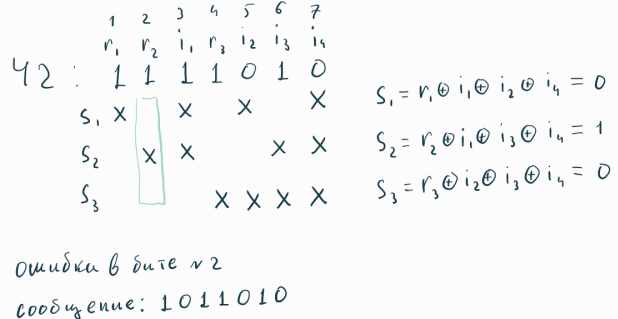 1 2 3 4 5 6 7
r₁ r₂ i₁ r₃ i₂ i₃ i₄
42: 1 1 1 1 0 1 0
S₁ X X X X
S₂ X X X X
S₃ X X X X
S₁ = r₁ ⊕ i₁ ⊕ i₂ ⊕ i₄ = 0
S₂ = r₂ ⊕ i₁ ⊕ i₃ ⊕ i₄ = 1
S₃ = r₃ ⊕ i₂ ⊕ i₃ ⊕ i₄ = 0
ошибка в бите №2
сообщение: 1011010